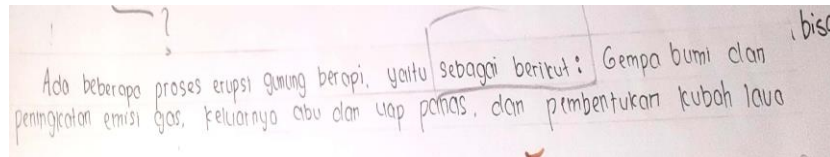 ?
, bisa
Ada beberapa proses erupsi gunung berapi, yaitu sebagai berikut : Gempa bumi dan
peningkatan emisi gas, keluarnya abu dan uap panas, dan pembentukan kubah lava